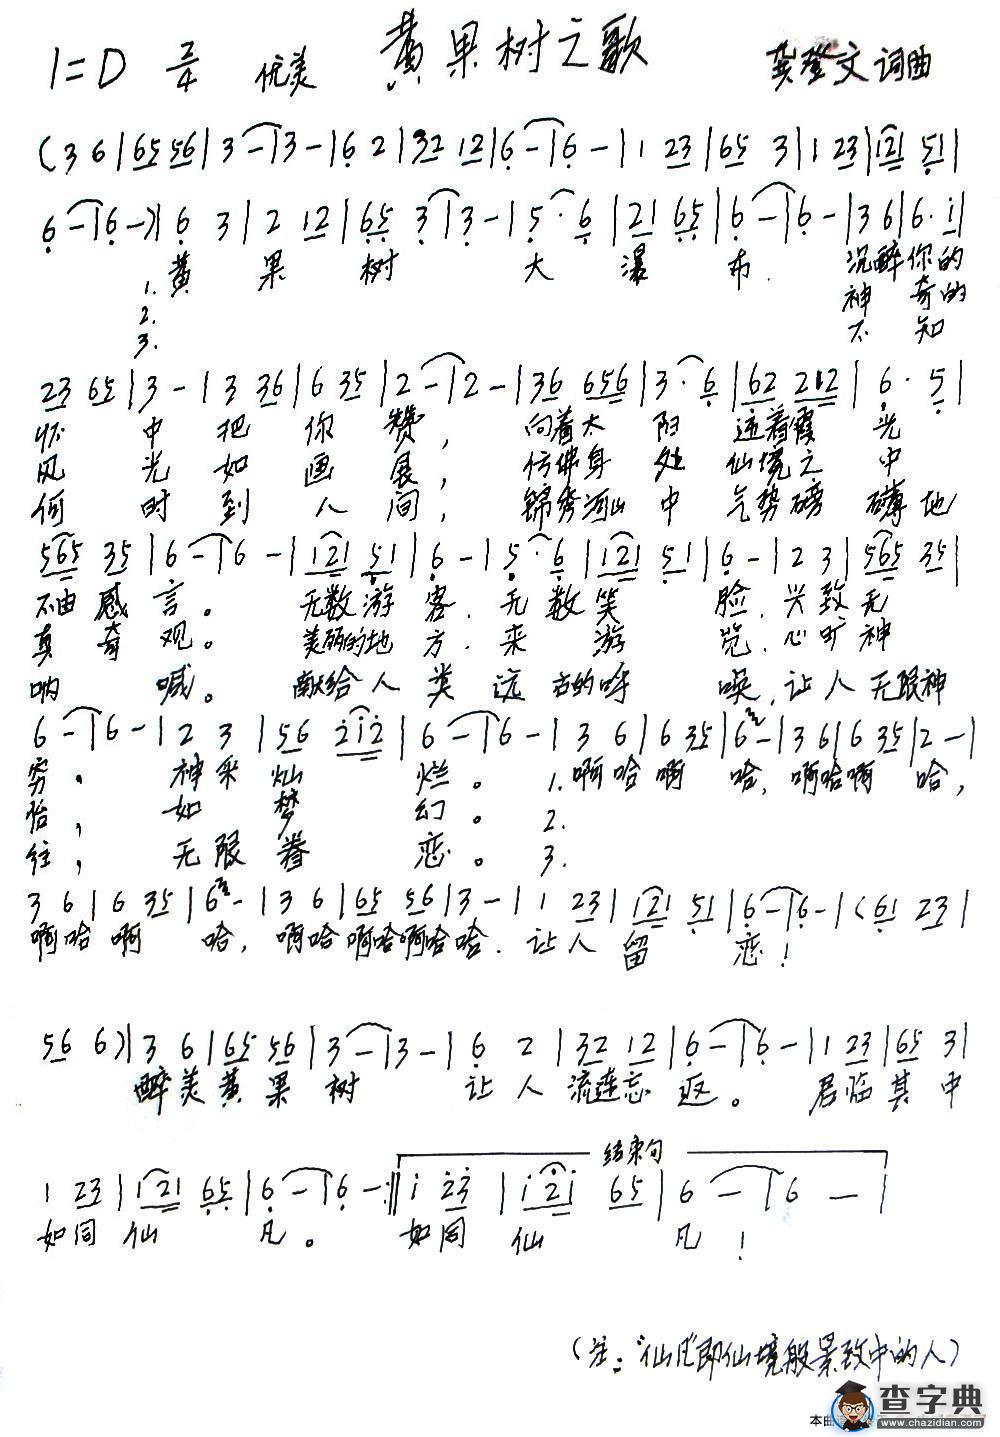 1=D 2/4 优美 黄果树之歌 龚登文 词曲
(3 6|65 56|3 -|3 -|6 2|32 12|6 -|6 -|1 23|65 3|1 23|121 51|
6 -|6 -)|6 3|2 12|65 3|3 -|5· 6|21 65|6 -|6 -|3 6|6· i|
1. 黄 果 树 大 瀑 布. 沉醉你的
2. 神 奇的
3. 不 知
23 65|3 -|3 36|6 35|2 -|2 -|36 656|3· 6|62 212|6· 5|
怀 中 把 你 赞, 向着太 阳 迎着霞 光
风 光 如 画 展, 仿佛身 处 仙境之 中
何 时 到 人 间, 锦秀河山 中 气势磅 礴地
565 35|6 -|6 -|121 51|6 -|5· 6|121 51|6 -|2 3|565 35|
不由 感 言。 无数游 客. 无 数 笑 脸. 兴致无
真 奇 观。 美丽的地 方. 来 游 览. 心旷神
呐 喊。 献给人 类 远 古的呼 唤. 让人 无限神
6 -|6 -|2 3|56 2i2|6 -|6 -|3 6|6 35|6 -|3 6|6 35|2 -|
穷。 神采 灿 烂。 1. 啊哈啊 哈, 啊哈啊 哈,
怡, 如 梦 幻。 2.
往, 无限 眷 恋。 3.
3 6|6 35|6 -|3 6|65 56|3 -|1 23|121 51|6 -|6 -|(61 23|
啊哈 啊 哈, 啊哈 啊哈啊哈哈. 让人 留 恋!
56 6)|3 6|65 56|3 -|3 -|6 2|32 12|6 -|6 -|1 23|65 3|
醉美黄 果 树 让 人 流连忘 返。 君临其中
结束句
1 23|121 65|6 -|6 -:‖i 23|i2i 65|6 -|6 -|
如同 仙 凡。 如同 仙 凡!
(注:“仙凡”即仙境般景致中的人)
查字典
www.chazidian.com
本曲